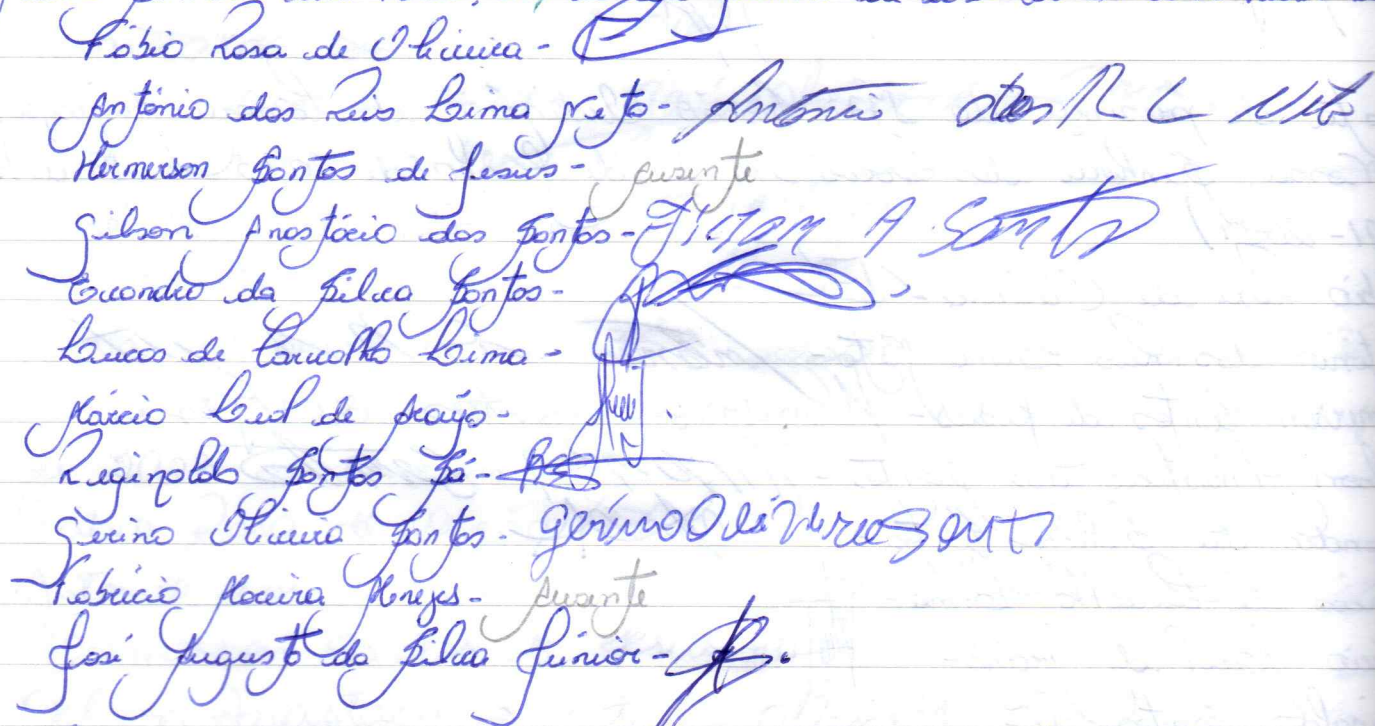 Fábio Rosa de Oliveira -
Antônio dos Reis Lima Neto - Antônio dos R L Neto
Hermerson Santos de Jesus - ausente
Gilson Anastácio dos Santos - Gilson A Santos
Evandro da Silva Santos -
Lucas de Carvalho Lima -
Márcio Leal de Araújo -
Reginaldo Santos Sá -
Gerino Oliveira Santos - Gerino Oliveira Santos
Fabrício Moreira Menezes - ausente
José Augusto da Silva Júnior -